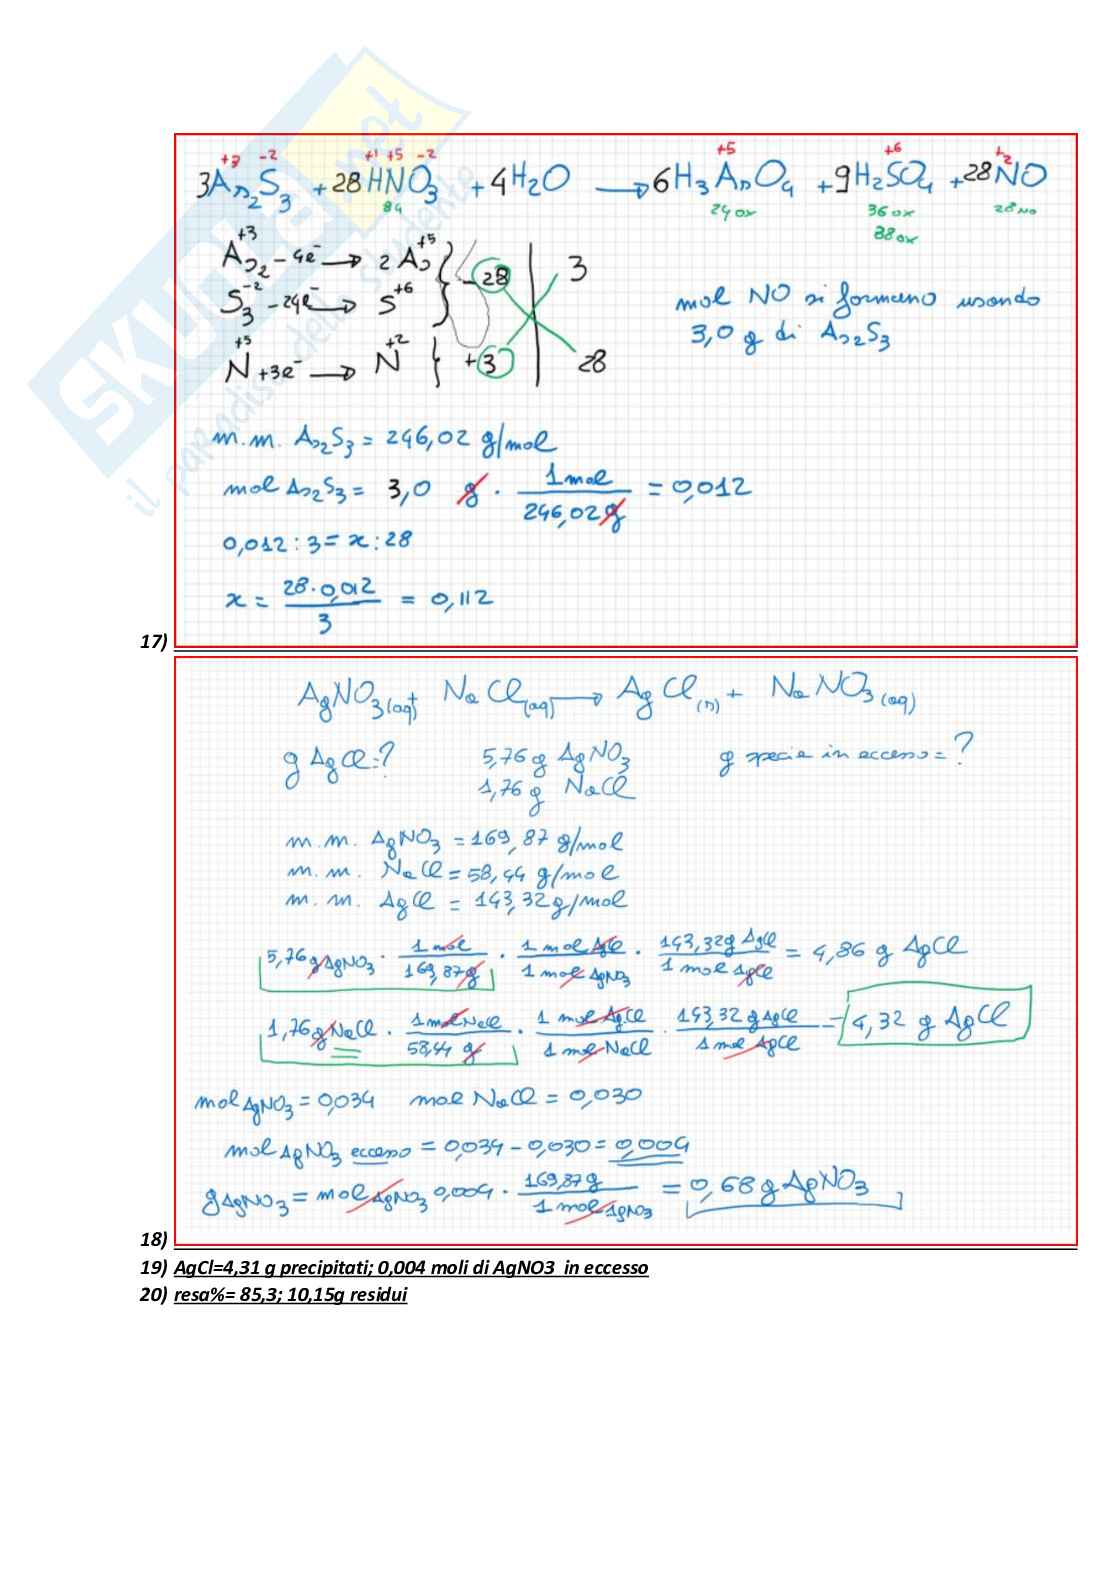 SKUOLA.net
il paradiso dello studente
+3 -2 +1 +5 -2 +5 +6 +2
3As₂S₃ + 28HNO₃ + 4H₂O → 6H₃AsO₄ + 9H₂SO₄ + 28NO
84 24 ox 36 ox 28 NO
38 ox
As₂⁺³ - 4e⁻ → 2 As⁺⁵ } -28 | 3
S₃⁻² - 24e⁻ → S⁺⁶
N⁺⁵ +3e⁻ → N⁺² { +3 | 28
mol NO si formano usando
3,0 g di As₂S₃
m.m. As₂S₃ = 246,02 g/mol
mol As₂S₃ = 3,0 g · 1mol / 246,02g = 0,012
0,012 : 3 = x : 28
x = 28·0,012 / 3 = 0,112
17)
AgNO₃(aq) + NaCl(aq) → AgCl(s) + NaNO₃(aq)
g AgCl = ? 5,76 g AgNO₃ g specie in eccesso = ?
1,76 g NaCl
m.m. AgNO₃ = 169,87 g/mol
m.m. NaCl = 58,44 g/mol
m.m. AgCl = 143,32 g/mol
5,76 g AgNO₃ · 1 mol / 169,87 g · 1 mol AgCl / 1 mol AgNO₃ · 143,32g AgCl / 1 mol AgCl = 4,86 g AgCl
1,76 g NaCl · 1 mol NaCl / 58,44 g · 1 mol AgCl / 1 mol NaCl · 143,32 g AgCl / 1 mol AgCl = 4,32 g AgCl
mol AgNO₃ = 0,034 mol NaCl = 0,030
mol AgNO₃ eccesso = 0,034 - 0,030 = 0,004
g AgNO₃ = mol AgNO₃ 0,004 · 169,87 g / 1 mol AgNO₃ = 0,68 g AgNO₃
18)
19) AgCl=4,31 g precipitati; 0,004 moli di AgNO3 in eccesso
20) resa%= 85,3; 10,15g residui